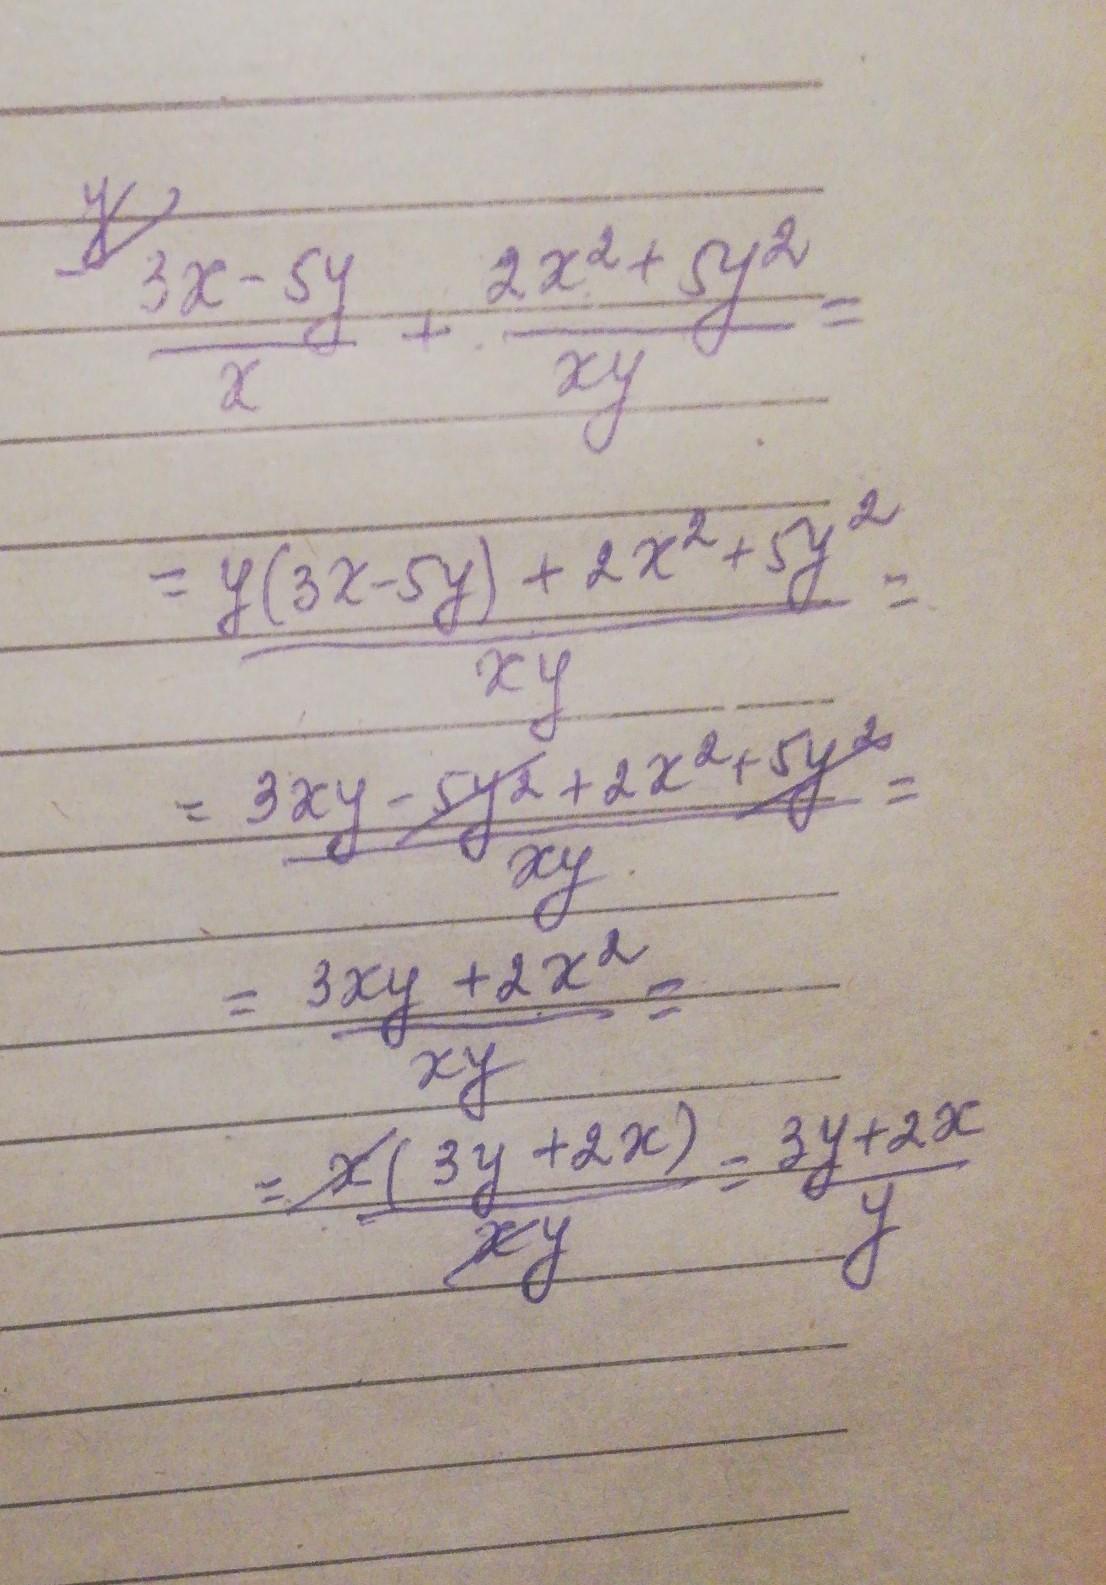 y
(3x - 5y)/x + (2x² + 5y²)/xy =
= (y(3x - 5y) + 2x² + 5y²)/xy =
= (3xy - 5y² + 2x² + 5y²)/xy =
= (3xy + 2x²)/xy =
= x(3y + 2x)/xy = (3y + 2x)/y